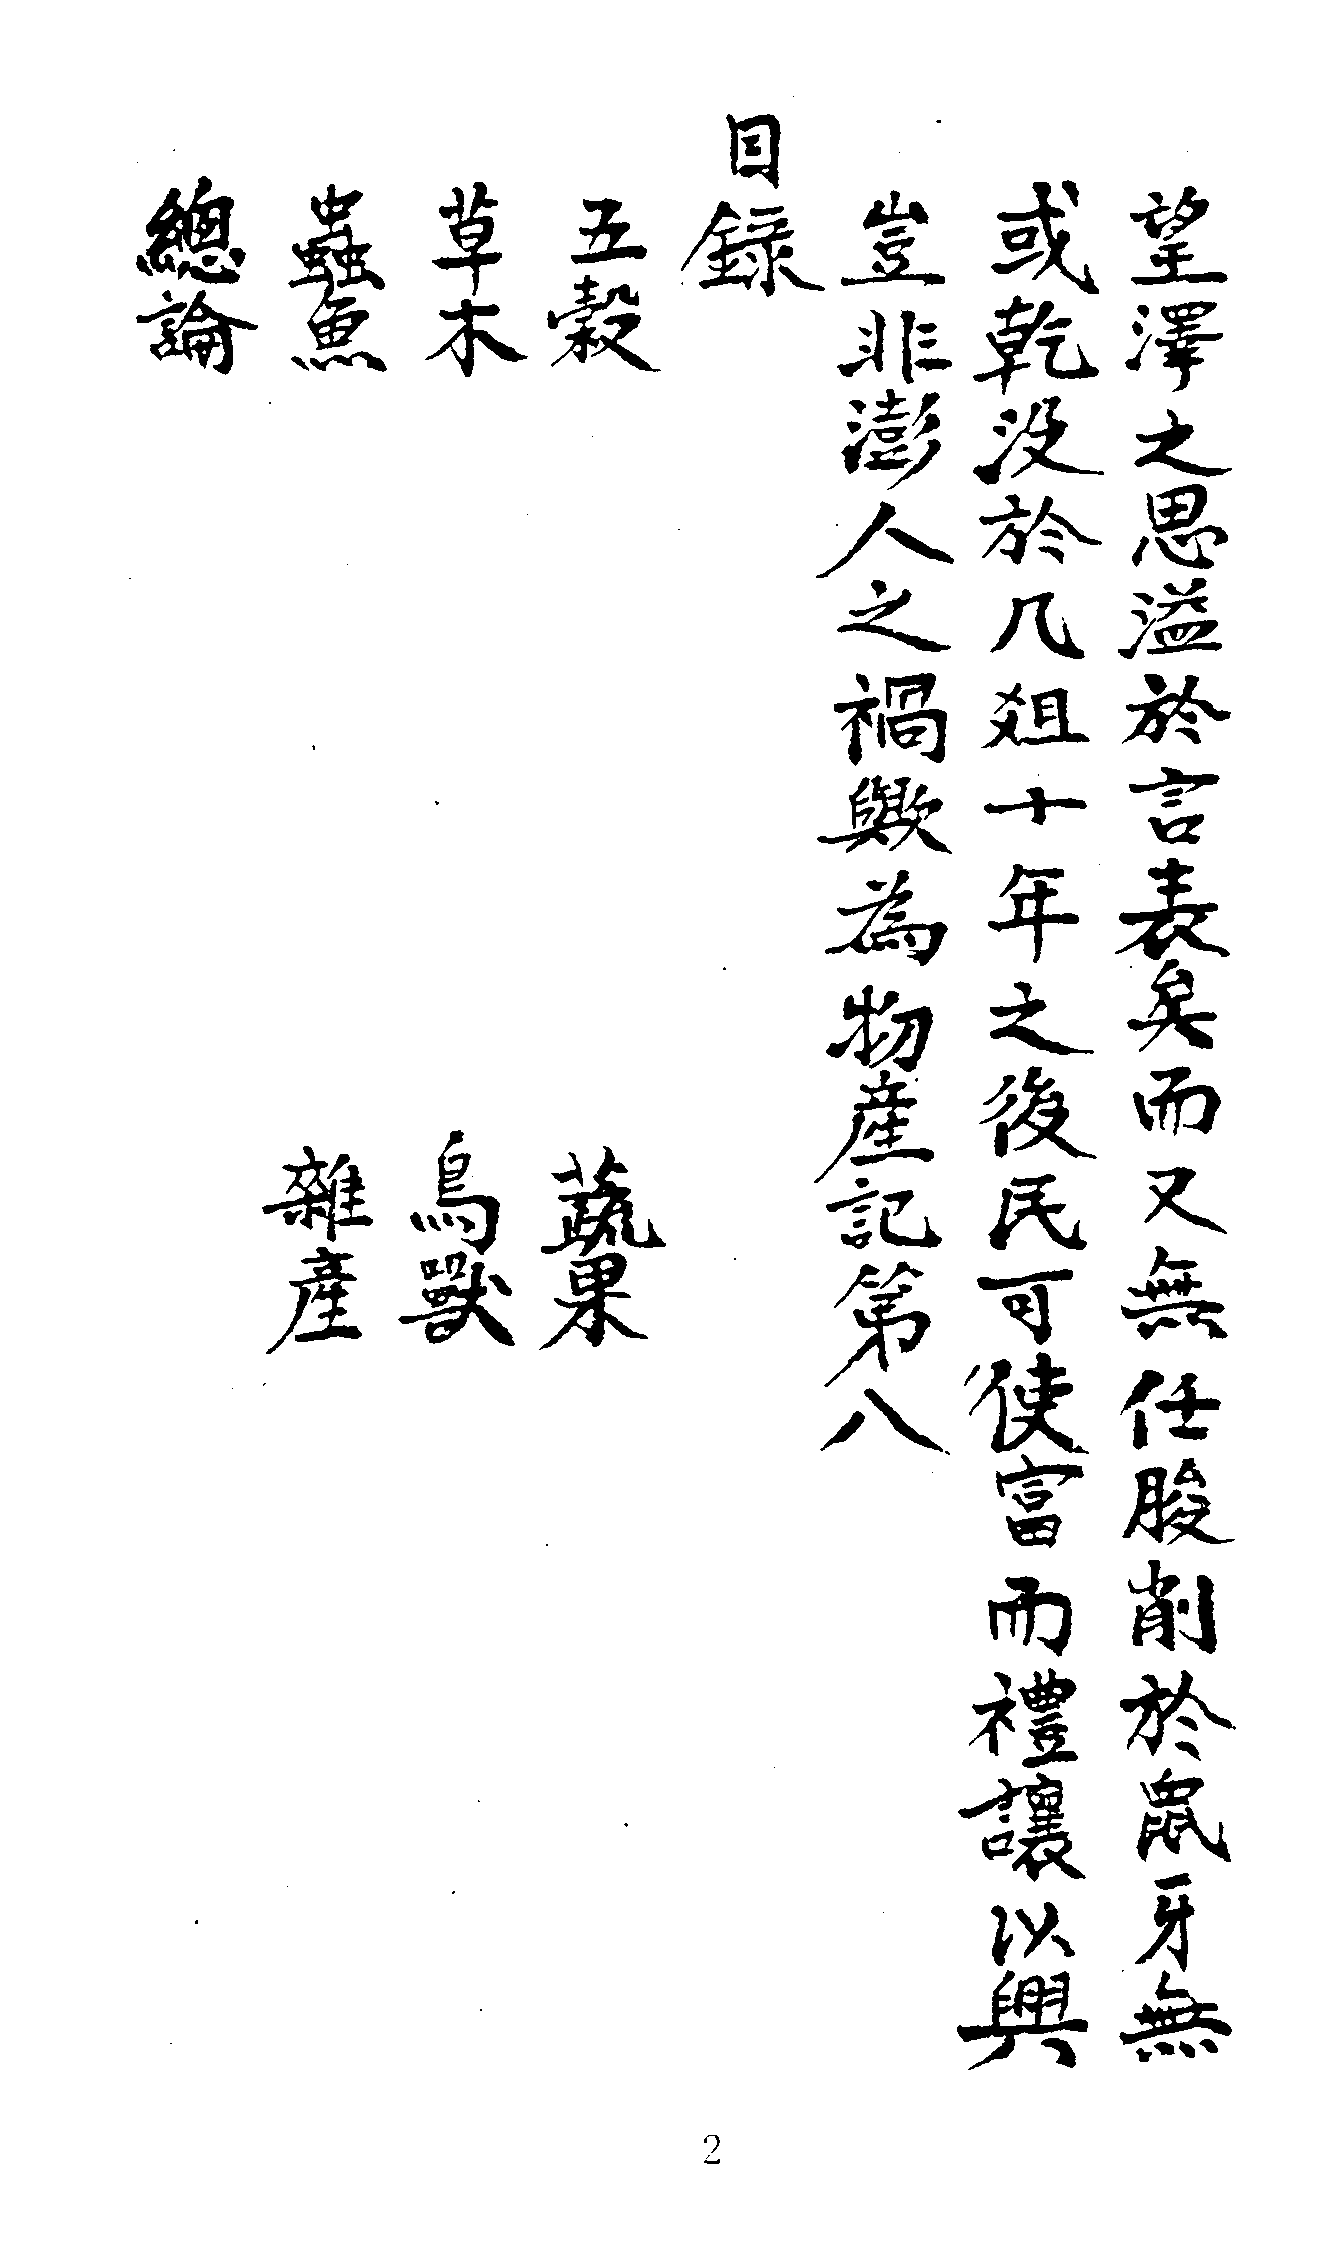 望澤之思溢於言表矣而又無任朘削於鼠牙無
或乾没於几俎十年之後民可使富而禮讓以興
豈非澎人之禍歟為物産記第八
目錄
五穀 蔬果
草木 鳥獸
蟲魚 雜産
總論
2